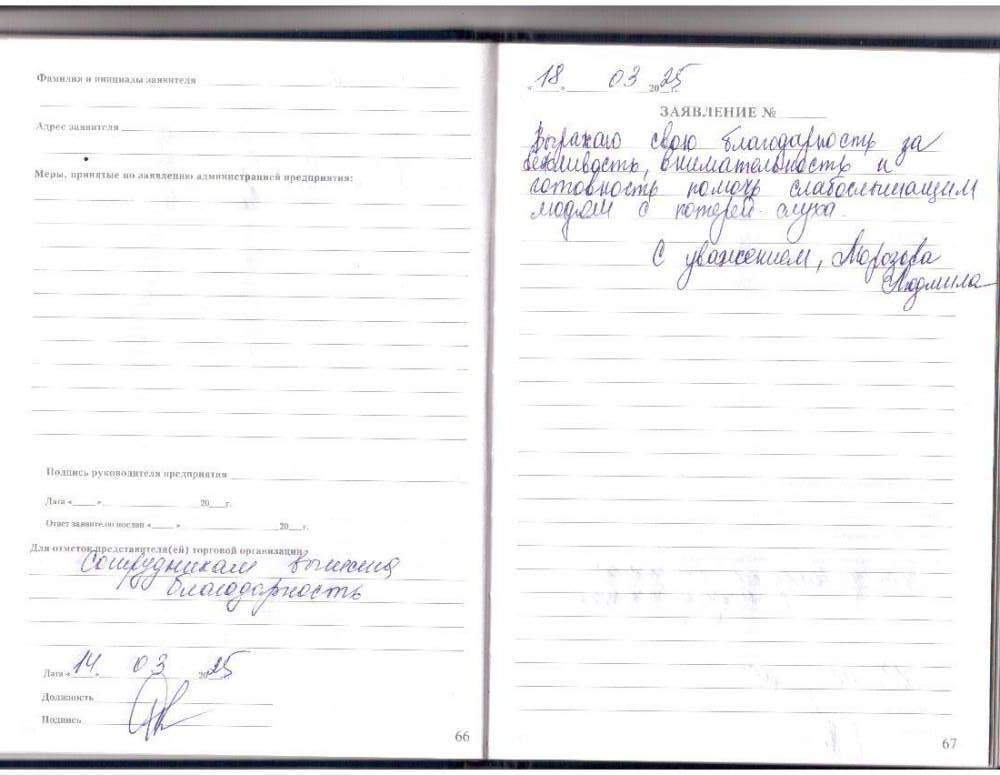 Фамилия и инициалы заявителя
Адрес заявителя
Меры, принятые по заявлению администрацией предприятия:
Подпись руководителя предприятия
Дата «___» ___ 20___г.
Ответ заявителю послан «___» ___ 20___г.
Для отметок представителя(ей) торговой организации:
Сотрудникам вынесена
благодарность
Дата «14» 03 2025
Должность
Подпись
66
«18» 03 2025г.
ЗАЯВЛЕНИЕ №
Выражаю свою благодарность за
вежливость, внимательность и
готовность помочь слабослышащим
людям с потерей слуха.
С уважением, Морозова
Людмила
67